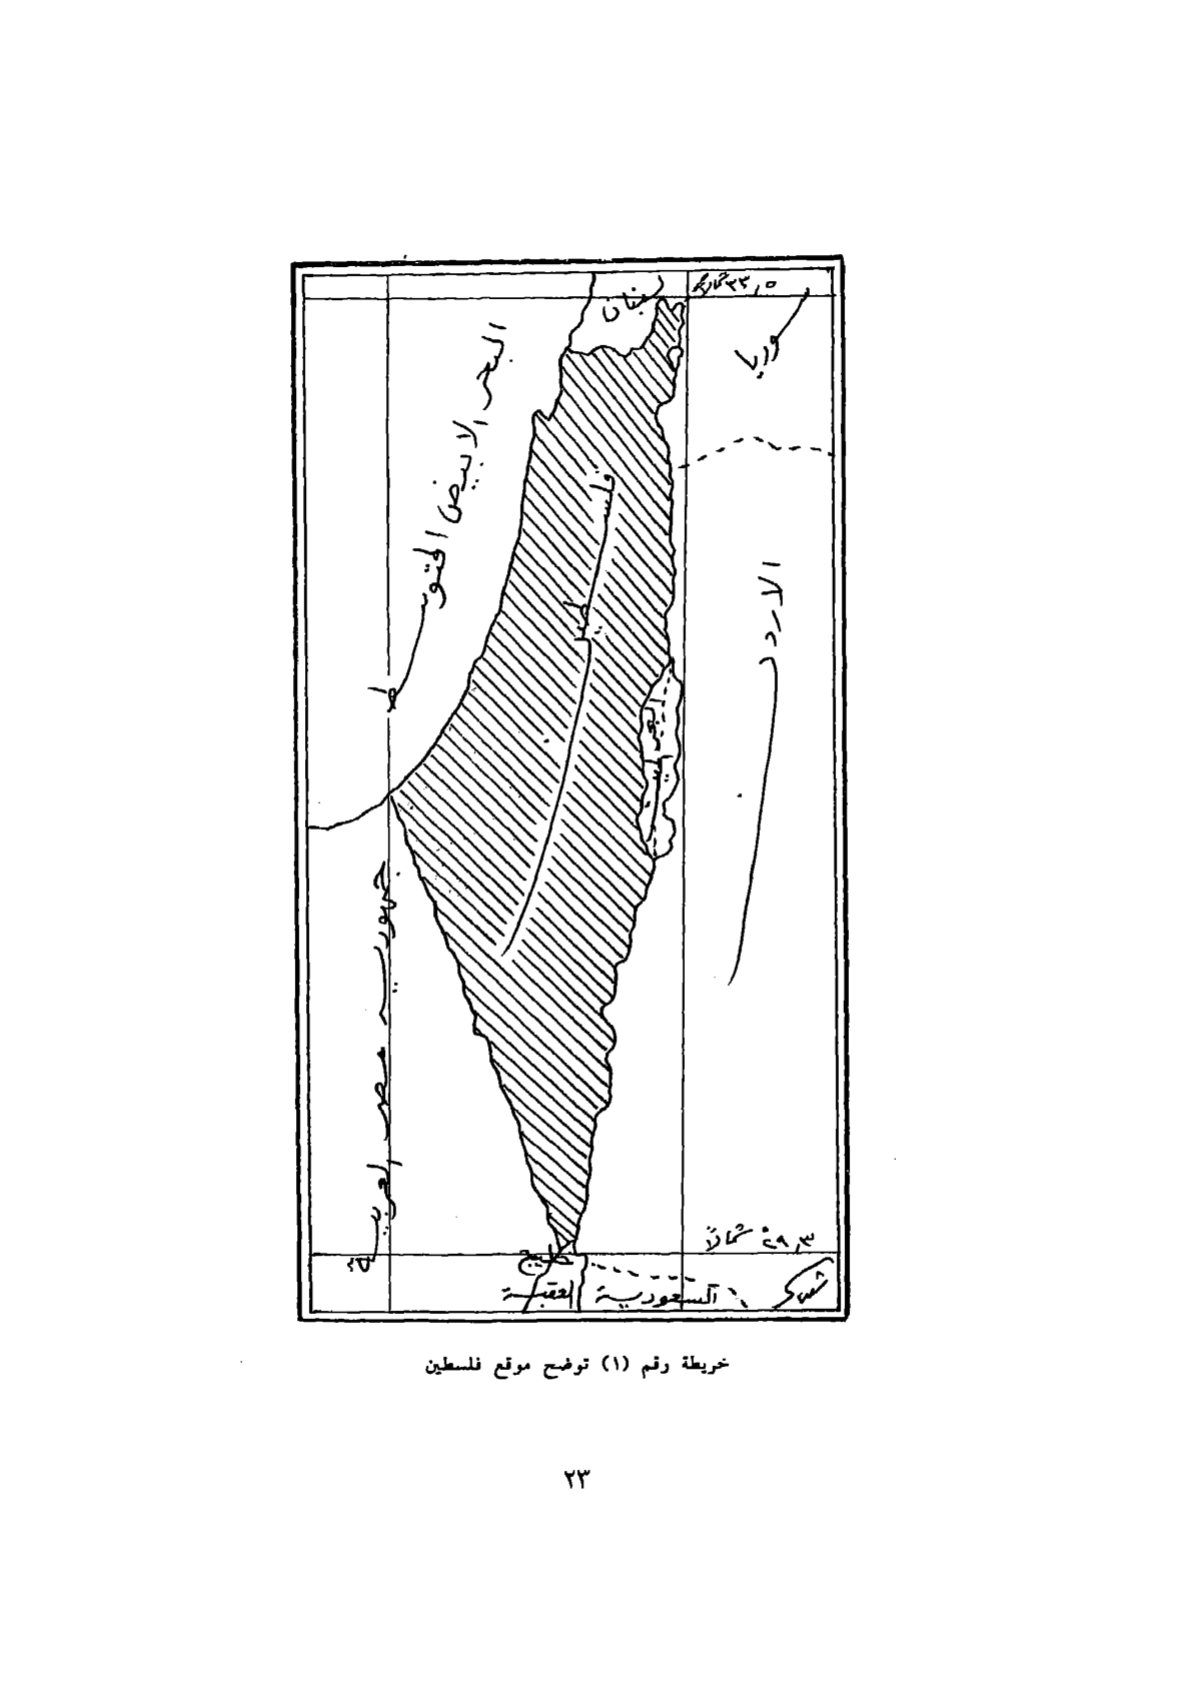 ٣٣,٥ شمالاً
لبنان
سوريا
البحر الابيض المتوسط
فلسطين
الاردن
جمهورية مصر العربية
٢٩,٣° شمالاً
خليج
العقبة
السعودية
خريطة رقم (١) توضح موقع فلسطين
٢٣